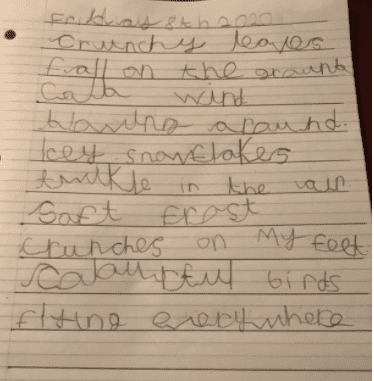 Friday 8th 2020
Crunchy leaves
frall on the ground
Cald wind
blowing around.
Icey snowflakes
twikle in the air
Soft frost
crunches on My feet
Calaurful birds
flying everywhere